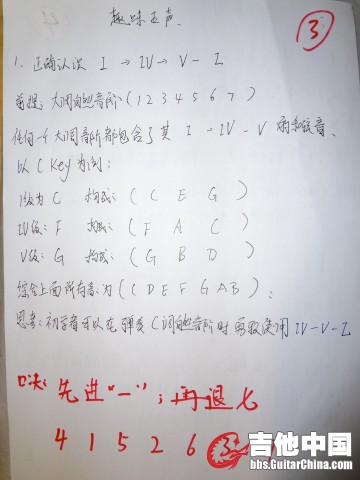 趣味五声
3
1. 正确认识 I → IV → V - I
前提: 大调自然音阶 (1 2 3 4 5 6 7)
任何一个大调音阶都包含了其 I → IV - V 的和弦音.
以 C Key 为例:
I级为 C 构成: ( C E G )
IV级: F 构成: ( F A C )
V级: G 构成: ( G B D )
综合上面所有音: 为 ( C D E F G A B );
思考: 初学者可以在弹奏 C调自然音阶时 使用 IV - V - I
口诀: 先进"一"; 再退七
4 1 5 2 6 3
吉他中国
bbs.GuitarChina.com